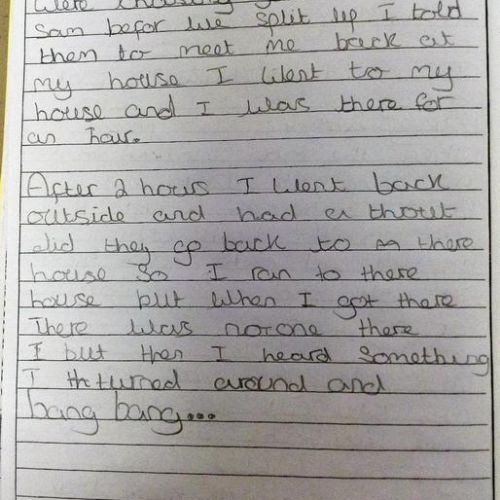 were
Sam befor we split up I told
them to meet me back at
my house I went to my
house and I was there for
an hour.
After 2 hours I went back
outside and had a thout
did they go back to there
house So I ran to there
house but when I got there
There was noone there
I but then I heard Something
I thturned around and
bang bang...